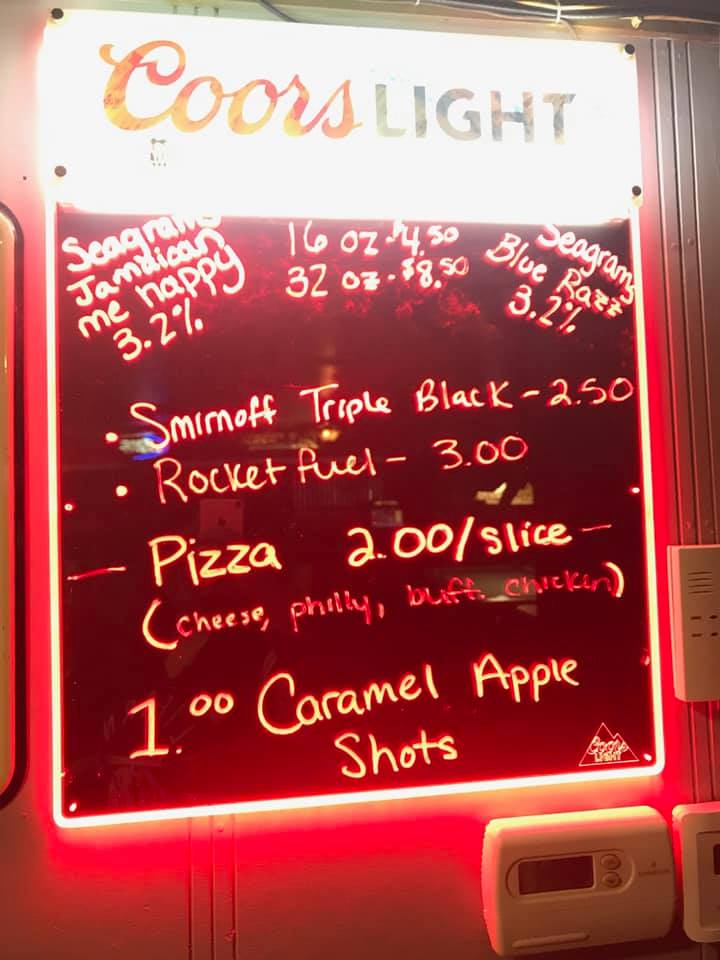 Coors LIGHT
Seagrams
Jamaican
me happy
3.2%
16 oz - $4.50
32 oz - $8.50
Seagrams
Blue Razz
3.2%
• Smirnoff Triple Black - 2.50
• Rocket fuel - 3.00
— Pizza 2.00/slice —
(cheese, philly, buff. chicken)
1.00 Caramel Apple
Shots
Coors
LIGHT